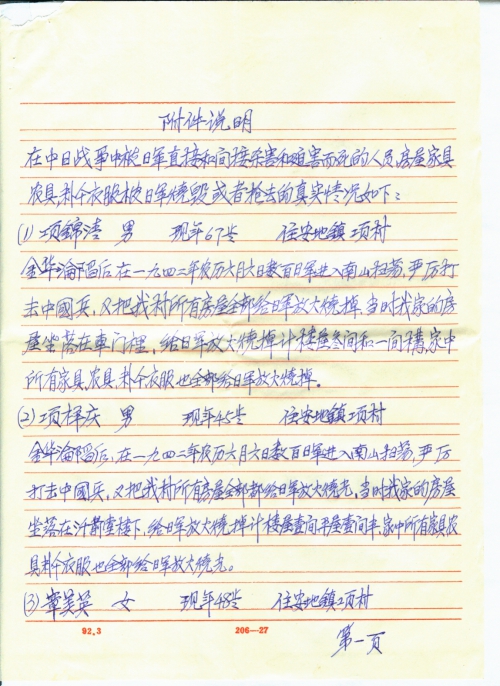 附件说明
在中日战争中被日军直接和间接杀害和迫害而死的人员,房屋家具
农具,朴令衣服被日军烧毁或者抢去的真实情况如下:
(1) 项锦清 男 现年67岁 住安地镇项村
金华沦陷后,在一九四二年农历六月六日数百日军进入南山扫荡,严厉打
击中國兵,又把我村所有房屋全部给日军放火烧掉,当时我家的房
屋坐落在車门裡,给日军放火烧掉计楼屋叁间和一间,家中
所有家具,农具,朴令衣服也全部给日军放火烧掉。
(2) 项样庆 男 现年45岁 住安地镇项村
金华沦陷后,在一九四二年农历六月六日数百日军进入南山扫荡,严厉
打击中國兵,又把我村所有房屋全部都给日军放火烧光,当时我家的房屋
坐落在汁都堂楼下,给日军放火烧掉计楼屋壹间平屋壹间半,家中所有家具,农
具朴令衣服也全部给日军放火烧光。
(3) 章美英 女 现年48岁 住安地镇项村
92.3 206—27
第一页